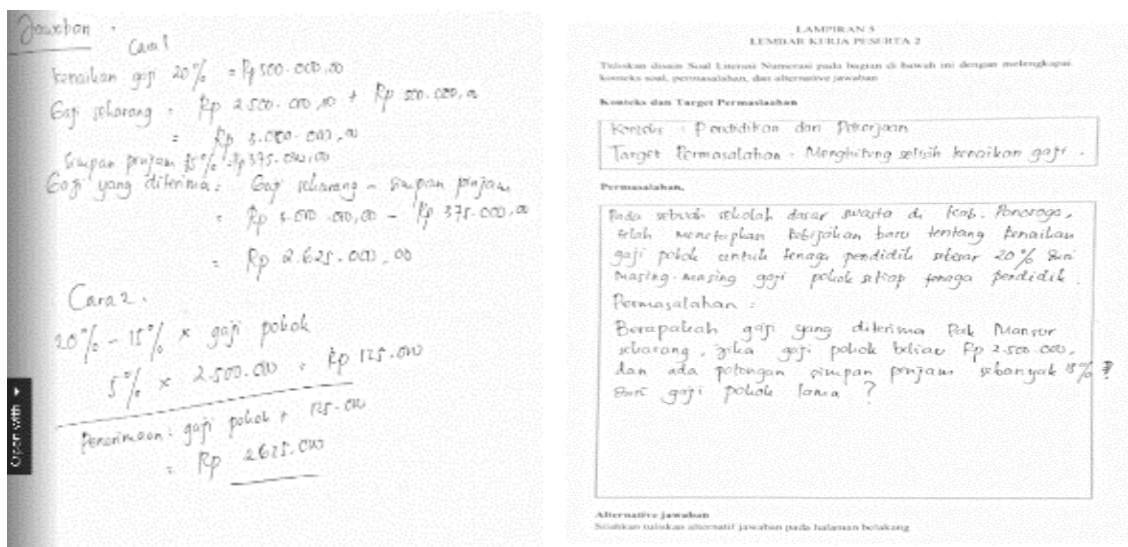 Jawaban :
Cara 1
Kenaikan gaji 20% = Rp 500.000,00
Gaji sekarang = Rp 2.500.000,00 + Rp 500.000,00
= Rp 3.000.000,00
Simpan pinjam 15% = Rp 375.000,00
Gaji yang diterima = Gaji sekarang - Simpan pinjam
= Rp 3.000.000,00 - Rp 375.000,00
= Rp 2.625.000,00
Cara 2.
20% - 15% x gaji pokok
5% x 2.500.000 = Rp 125.000
Penerimaan : gaji pokok + 125.000
= Rp 2.625.000
Open with
LAMPIRAN 5
LEMBAR KERJA PESERTA 2
Tuliskan disain Soal Literasi Numerasi pada bagian di bawah ini dengan melengkapi
konteks soal, permasalahan, dan alternative jawaban
Konteks dan Target Permasalahan
Konteks : Pendidikan dan Pekerjaan
Target Permasalahan : Menghitung selisih kenaikan gaji.
Permasalahan,
Pada sebuah sekolah dasar swasta di Kab. Ponorogo,
telah menetapkan kebijakan baru tentang kenaikan
gaji pokok untuk tenaga pendidik sebesar 20% dari
masing-masing gaji pokok setiap tenaga pendidik.
Permasalahan :
Berapakah gaji yang diterima Pak Mansur
sekarang, jika gaji pokok beliau Rp 2.500.000,
dan ada potongan simpan pinjam sebanyak 15%
dari gaji pokok lama ?
Alternative jawaban
Silahkan tuliskan alternatif jawaban pada halaman belakang